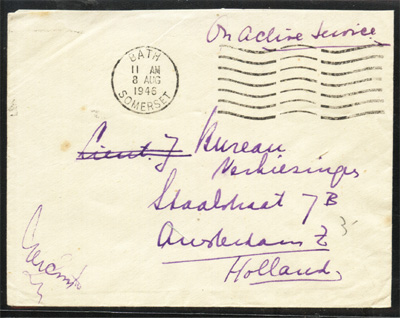 On Active Service
BATH
11 AM
8 AUG
1946
SOMERSET
Lieut. J Bureau
Verkiesinges
Staalstraat 7B
Amsterdam Z
Holland